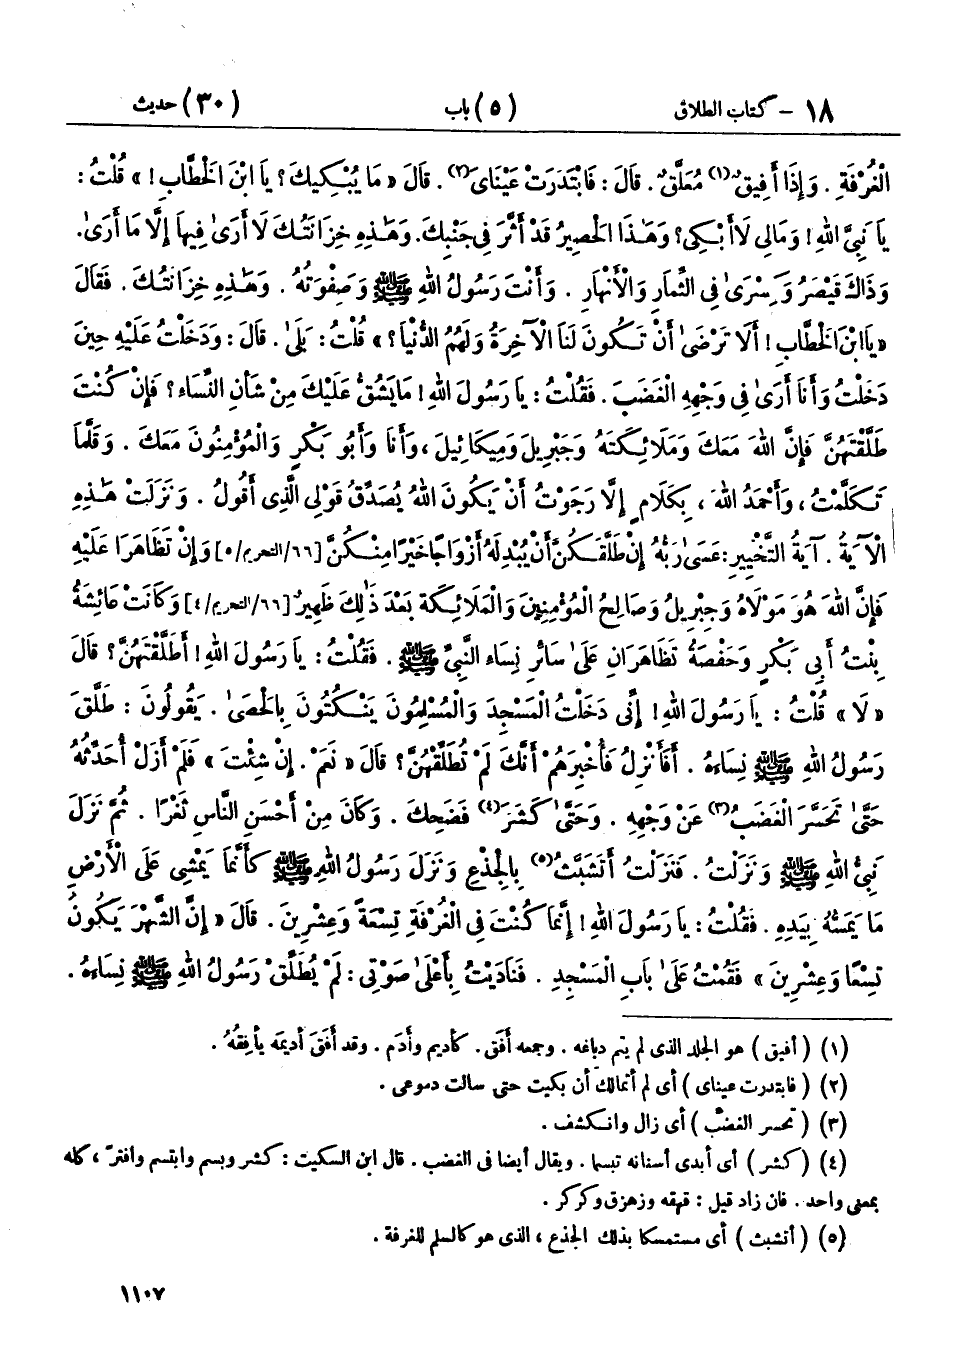 ١٨ – كتاب الطلاق (٥) باب (٣٠) حديث
الْغُرْفَةِ . وَإِذَا أَفِيقٌ(١) مُعَلَّقٌ . قَالَ : فَابْتَدَرَتْ عَيْنَاىَ(٢) . قَالَ « مَا يُبْكِيكَ ؟ يَا ابْنَ الْخَطَّابِ ! » قُلْتُ :
يَا نَبِيَّ اللهِ ! وَمَالِي لَا أَبْكِي ؟ وَهَٰذَا الْحَصِيرُ قَدْ أَثَّرَ فِي جَنْبِكَ. وَهَٰذِهِ خِزَانَتُكَ لَا أَرَىٰ فِيهَا إِلَّا مَا أَرَىٰ.
وَذَاكَ قَيْصَرُ وَكِسْرَىٰ فِي الثِّمَارِ وَالْأَنْهَارِ . وَأَنْتَ رَسُولُ اللهِ ﷺ وَصَفْوَتُهُ . وَهَٰذِهِ خِزَانَتُكَ . فَقَالَ
« يَا ابْنَ الْخَطَّابِ ! أَلَا تَرْضَىٰ أَنْ تَكُونَ لَنَا الْآخِرَةُ وَلَهُمُ الدُّنْيَا ؟ » قُلْتُ : بَلَىٰ . قَالَ : وَدَخَلْتُ عَلَيْهِ حِينَ
دَخَلْتُ وَأَنَا أَرَىٰ فِي وَجْهِهِ الْغَضَبَ . فَقُلْتُ : يَا رَسُولَ اللهِ ! مَا يَشُقُّ عَلَيْكَ مِنْ شَأْنِ النِّسَاءِ ؟ فَإِنْ كُنْتَ
طَلَّقْتَهُنَّ فَإِنَّ اللهَ مَعَكَ وَمَلَائِكَتَهُ وَجِبْرِيلَ وَمِيكَائِيلَ ، وَأَنَا وَأَبُو بَكْرٍ وَالْمُؤْمِنُونَ مَعَكَ . وَقَلَّمَا
تَكَلَّمْتُ ، وَأَحْمَدُ اللهَ ، بِكَلَامٍ إِلَّا رَجَوْتُ أَنْ يَكُونَ اللهُ يُصَدِّقُ قَوْلِي الَّذِي أَقُولُ . وَنَزَلَتْ هَٰذِهِ
الْآيَةُ . آيَةُ التَّخْيِيرِ: عَسَىٰ رَبُّهُ إِنْ طَلَّقَكُنَّ أَنْ يُبْدِلَهُ أَزْوَاجًا خَيْرًا مِنْكُنَّ [٦٦/التحريم/٥] وَإِنْ تَظَاهَرَا عَلَيْهِ
فَإِنَّ اللهَ هُوَ مَوْلَاهُ وَجِبْرِيلُ وَصَالِحُ الْمُؤْمِنِينَ وَالْمَلَائِكَةُ بَعْدَ ذَٰلِكَ ظَهِيرٌ [٦٦/التحريم/٤] وَكَانَتْ عَائِشَةُ
بِنْتُ أَبِي بَكْرٍ وَحَفْصَةُ تَظَاهَرَانِ عَلَىٰ سَائِرِ نِسَاءِ النَّبِيِّ ﷺ . فَقُلْتُ : يَا رَسُولَ اللهِ ! أَطَلَّقْتَهُنَّ ؟ قَالَ
« لَا » قُلْتُ : يَا رَسُولَ اللهِ ! إِنِّي دَخَلْتُ الْمَسْجِدَ وَالْمُسْلِمُونَ يَنْكُتُونَ بِالْحَصَىٰ . يَقُولُونَ : طَلَّقَ
رَسُولُ اللهِ ﷺ نِسَاءَهُ . أَفَأَنْزِلُ فَأُخْبِرَهُمْ أَنَّكَ لَمْ تُطَلِّقْهُنَّ ؟ قَالَ « نَعَمْ . إِنْ شِئْتَ » فَلَمْ أَزَلْ أُحَدِّثُهُ
حَتَّىٰ تَحَسَّرَ الْغَضَبُ(٣) عَنْ وَجْهِهِ . وَحَتَّىٰ كَشَرَ(٤) فَضَحِكَ . وَكَانَ مِنْ أَحْسَنِ النَّاسِ ثَغْرًا . ثُمَّ نَزَلَ
نَبِيُّ اللهِ ﷺ وَنَزَلْتُ . فَنَزَلْتُ أَتَشَبَّثُ(٥) بِالْجِذْعِ وَنَزَلَ رَسُولُ اللهِ ﷺ كَأَنَّمَا يَمْشِي عَلَى الْأَرْضِ
مَا يَمَسُّهُ بِيَدِهِ . فَقُلْتُ : يَا رَسُولَ اللهِ ! إِنَّمَا كُنْتَ فِي الْغُرْفَةِ تِسْعَةً وَعِشْرِينَ . قَالَ « إِنَّ الشَّهْرَ يَكُونُ
تِسْعًا وَعِشْرِينَ » فَقُمْتُ عَلَىٰ بَابِ الْمَسْجِدِ . فَنَادَيْتُ بِأَعْلَىٰ صَوْتِي : لَمْ يُطَلِّقْ رَسُولُ اللهِ ﷺ نِسَاءَهُ .
(١) ( أفيق ) هو الجلد الذى لم يتم دباغه . وجمعه أَفَق . كأديم وأَدَم . وقد أَفَقَ أديمَه يأفِقُهُ .
(٢) ( فابتدرت عيناى ) أى لم أتمالك أن بكيت حتى سالت دموعى .
(٣) ( تحسر الغضب ) أى زال وانكشف .
(٤) ( كشر ) أى أبدى أسنانه تبسما . ويقال أيضا فى الغضب . قال ابن السكيت : كشر وبسم وابتسم وافترّ ، كله
بمعنى واحد . فان زاد قيل : قهقه وزهزق وكركر .
(٥) ( أتشبث ) أى مستمسكا بذلك الجذع ، الذى هو كالسلم للغرفة .
١١٠٧